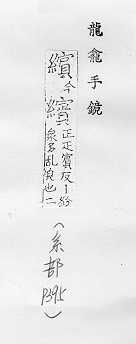 龍龕手鏡
繽今繽正疋賓反丨紛
衆多乱皃也二
(糸部
P395)